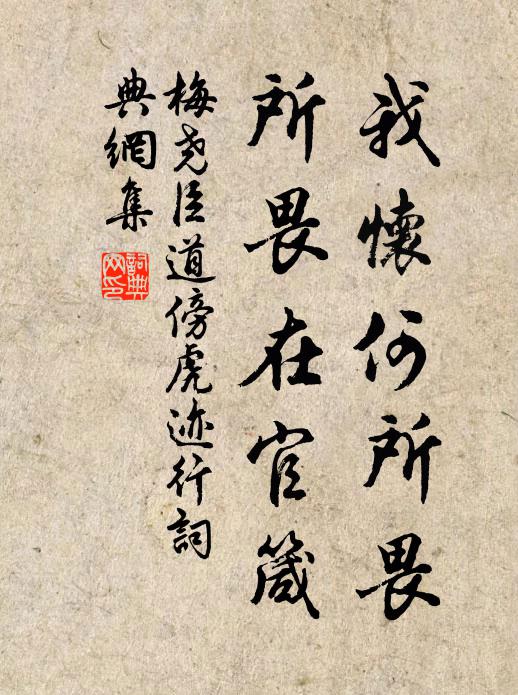 我懷何所畏
所畏在官箴
梅堯臣道傍虎迹行詞
典網集
詞典網印